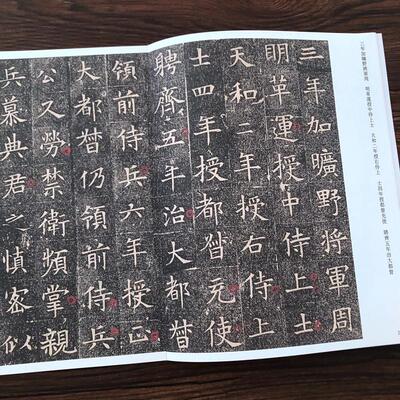 三年加曠野將軍周　明革運授中侍上士　天和二年授右侍上　士四年授都督充使　聘齊五年治大都督
三年加曠野將軍周
明革運授中侍上士
天和二年授右侍上
士四年授都督充使
聘齊五年治大都督
領前侍兵六年授正
大都督仍領前侍兵
公又勞禁衛頻掌親
兵慕典君之慎密似